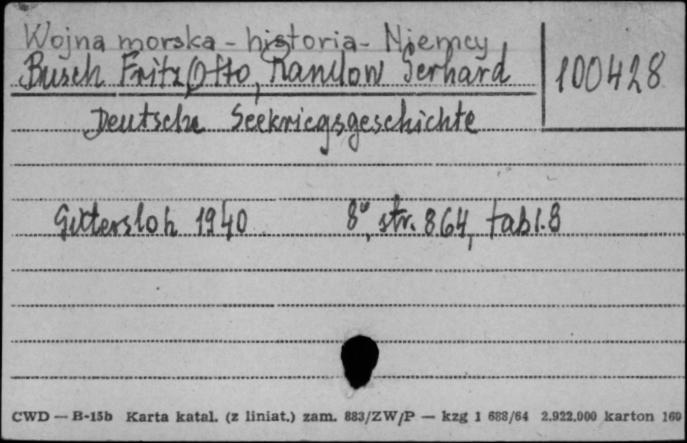 Wojna morska - historia - Niemcy
Busch Fritz Otto, Ramlow Gerhard
100428
Deutsche Seekriegsgeschichte
Gütersloh 1940 8°, str. 864, tabl. 8
CWD — B-15b Karta katal. (z liniat.) zam. 883/ZW/P — kzg 1 688/64 2.922.000 karton 160